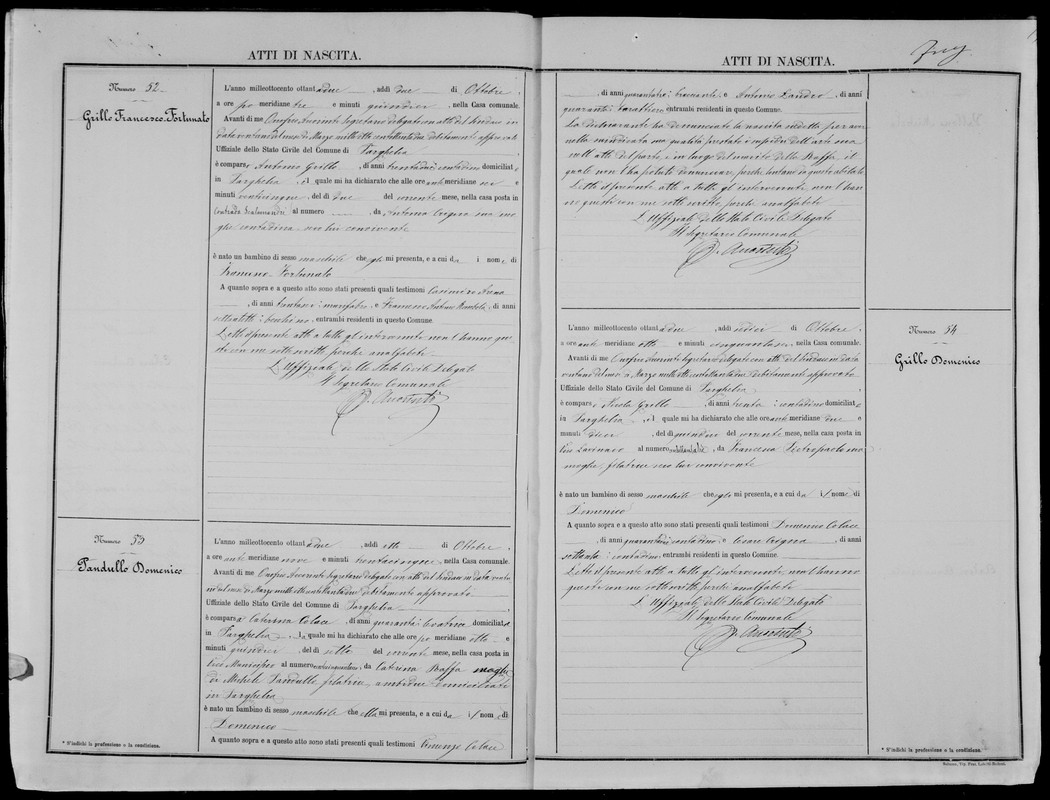 ATTI DI NASCITA.
Numero 52
Grillo Francesco Fortunato
L'anno milleottocento ottantadue, addì due di Ottobre,
a ore po meridiane tre e minuti quindici, nella Casa comunale.
Avanti di me Onofrio Segretario delegato con atto del Sindaco in
data del mese di Marzo mille ottocentottantadue debitamente approvato
Uffiziale dello Stato Civile del Comune di Parghelia
è comparso Antonio Grillo, di anni trentadue contadino domiciliato
in Parghelia, il quale mi ha dichiarato che alle ore ant meridiane sei e
minuti venticinque, del dì due del corrente mese, nella casa posta in
Contrada al numero , da Antonia mo
glie contadina seco lui convivente
è nato un bambino di sesso maschile che egli mi presenta, e a cui dà i nomi di
Francesco Fortunato
A quanto sopra e a questo atto sono stati presenti quali testimoni Casimiro
, di anni e Francesco Antonio, di anni
entrambi residenti in questo Comune.
Letto il presente atto a tutti gl'intervenuti non l'hanno que
sti con me sottoscritto perchè analfabeti
L'Uffiziale dello Stato Civile Delegato
Il Segretario Comunale
Numero 53
Pandullo Domenico
L'anno milleottocento ottantadue, addì otto di Ottobre,
a ore ant meridiane nove e minuti trentacinque, nella Casa comunale.
Avanti di me Onofrio Segretario delegato con atto del Sindaco in data
del mese di Marzo mille ottocentottantadue debitamente approvato
Uffiziale dello Stato Civile del Comune di Parghelia
è comparsa Caterina Colace, di anni quaranta levatrice domiciliata
in Parghelia, la quale mi ha dichiarato che alle ore po meridiane otto e
minuti quindici, del dì sette del corrente mese, nella casa posta in
Vico Municipio al numero, da Caterina Raffa moglie
di Michele Pandullo filatrice, ambidue domiciliati
in Parghelia
è nato un bambino di sesso maschile che ella mi presenta, e a cui dà il nome di
Domenico
A quanto sopra e a questo atto sono stati presenti quali testimoni Vincenzo Colace
* S'indichi la professione o la condizione.
ATTI DI NASCITA.
, di anni quarantatre e Antonio, di anni
quaranta entrambi residenti in questo Comune.
La dichiarante ha denunciato la nascita suddetta per aver
nella suindicata sua qualità prestato i suoi dell'arte sua
nell'atto del parto, e in luogo del marito della Raffa, il
quale non l'ha potuto denunciare perchè lontano da questo abitato
Letto il presente atto a tutti gl'intervenuti non l'han
no questi con me sottoscritto, perchè analfabeti
L'Uffiziale dello Stato Civile Delegato
Il Segretario Comunale
Numero 54
Grillo Domenico
L'anno milleottocento ottantadue, addì sedici di Ottobre,
a ore ant meridiane otto e minuti, nella Casa comunale.
Avanti di me Onofrio Segretario delegato con atto del Sindaco in data
del mese di Marzo mille ottocentottantadue debitamente approvato
Uffiziale dello Stato Civile del Comune di Parghelia
è comparso Nicola Grillo, di anni trenta contadino domiciliato
in Parghelia, il quale mi ha dichiarato che alle ore ant meridiane due e
minuti dieci, del dì quindici del corrente mese, nella casa posta in
Vico al numero, da Francesca Pietropaolo sua
moglie filatrice seco lui convivente
è nato un bambino di sesso maschile che egli mi presenta, e a cui dà il nome di
Domenico
A quanto sopra e a questo atto sono stati presenti quali testimoni Domenico Colace
, di anni quaranta contadino e Cesare, di anni
settanta contadino, entrambi residenti in questo Comune.
Letto il presente atto a tutti gl'intervenuti non l'hanno
questi con me sottoscritto perchè analfabeti
L'Uffiziale dello Stato Civile Delegato
Il Segretario Comunale
* S'indichi la professione o la condizione.